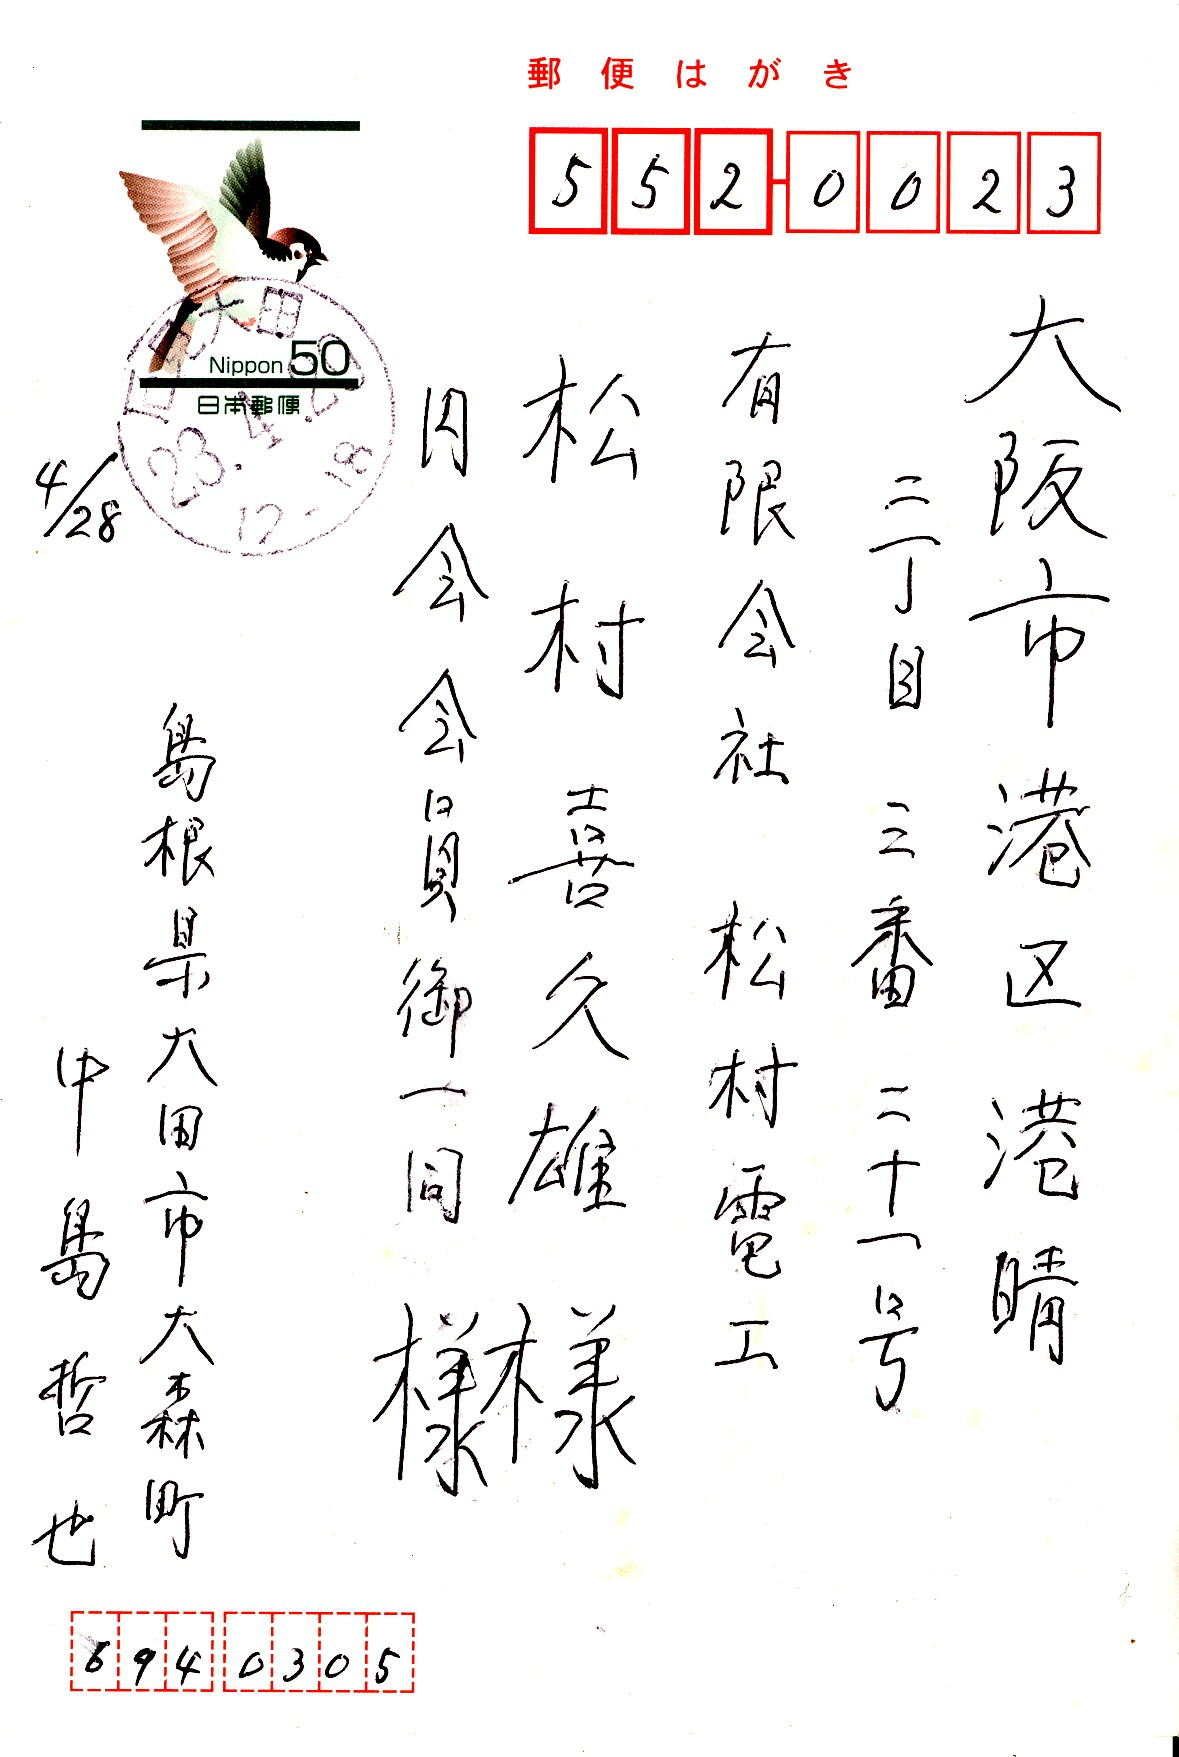 郵便はがき
552-0023
大阪市港区港晴
二丁目三番二十一号
有限会社 松村電工
松村喜久雄様
会会員御一同様
Nippon 50
日本郵便
大田
23.4.28
12-18
4/28
島根県大田市大森町
中島哲也
694 0305